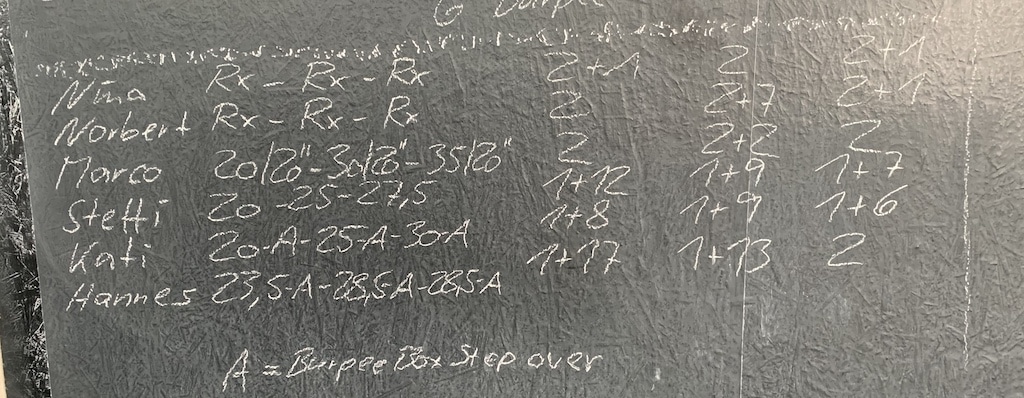 6 Burpee
Nina Rx - Rx - Rx 2+1 2 2+1
Norbert Rx - Rx - Rx 2 2+7 2+1
Marco 20/20"-30/20"-35/20" 2 2+2 2
Steffi 20-25-27,5 1+12 1+9 1+7
Kati 20-A-25-A-30-A 1+8 1+9 1+6
Hannes 23,5-A-28,5-A-28,5-A 1+17 1+13 2
A = Burpee Box Step over